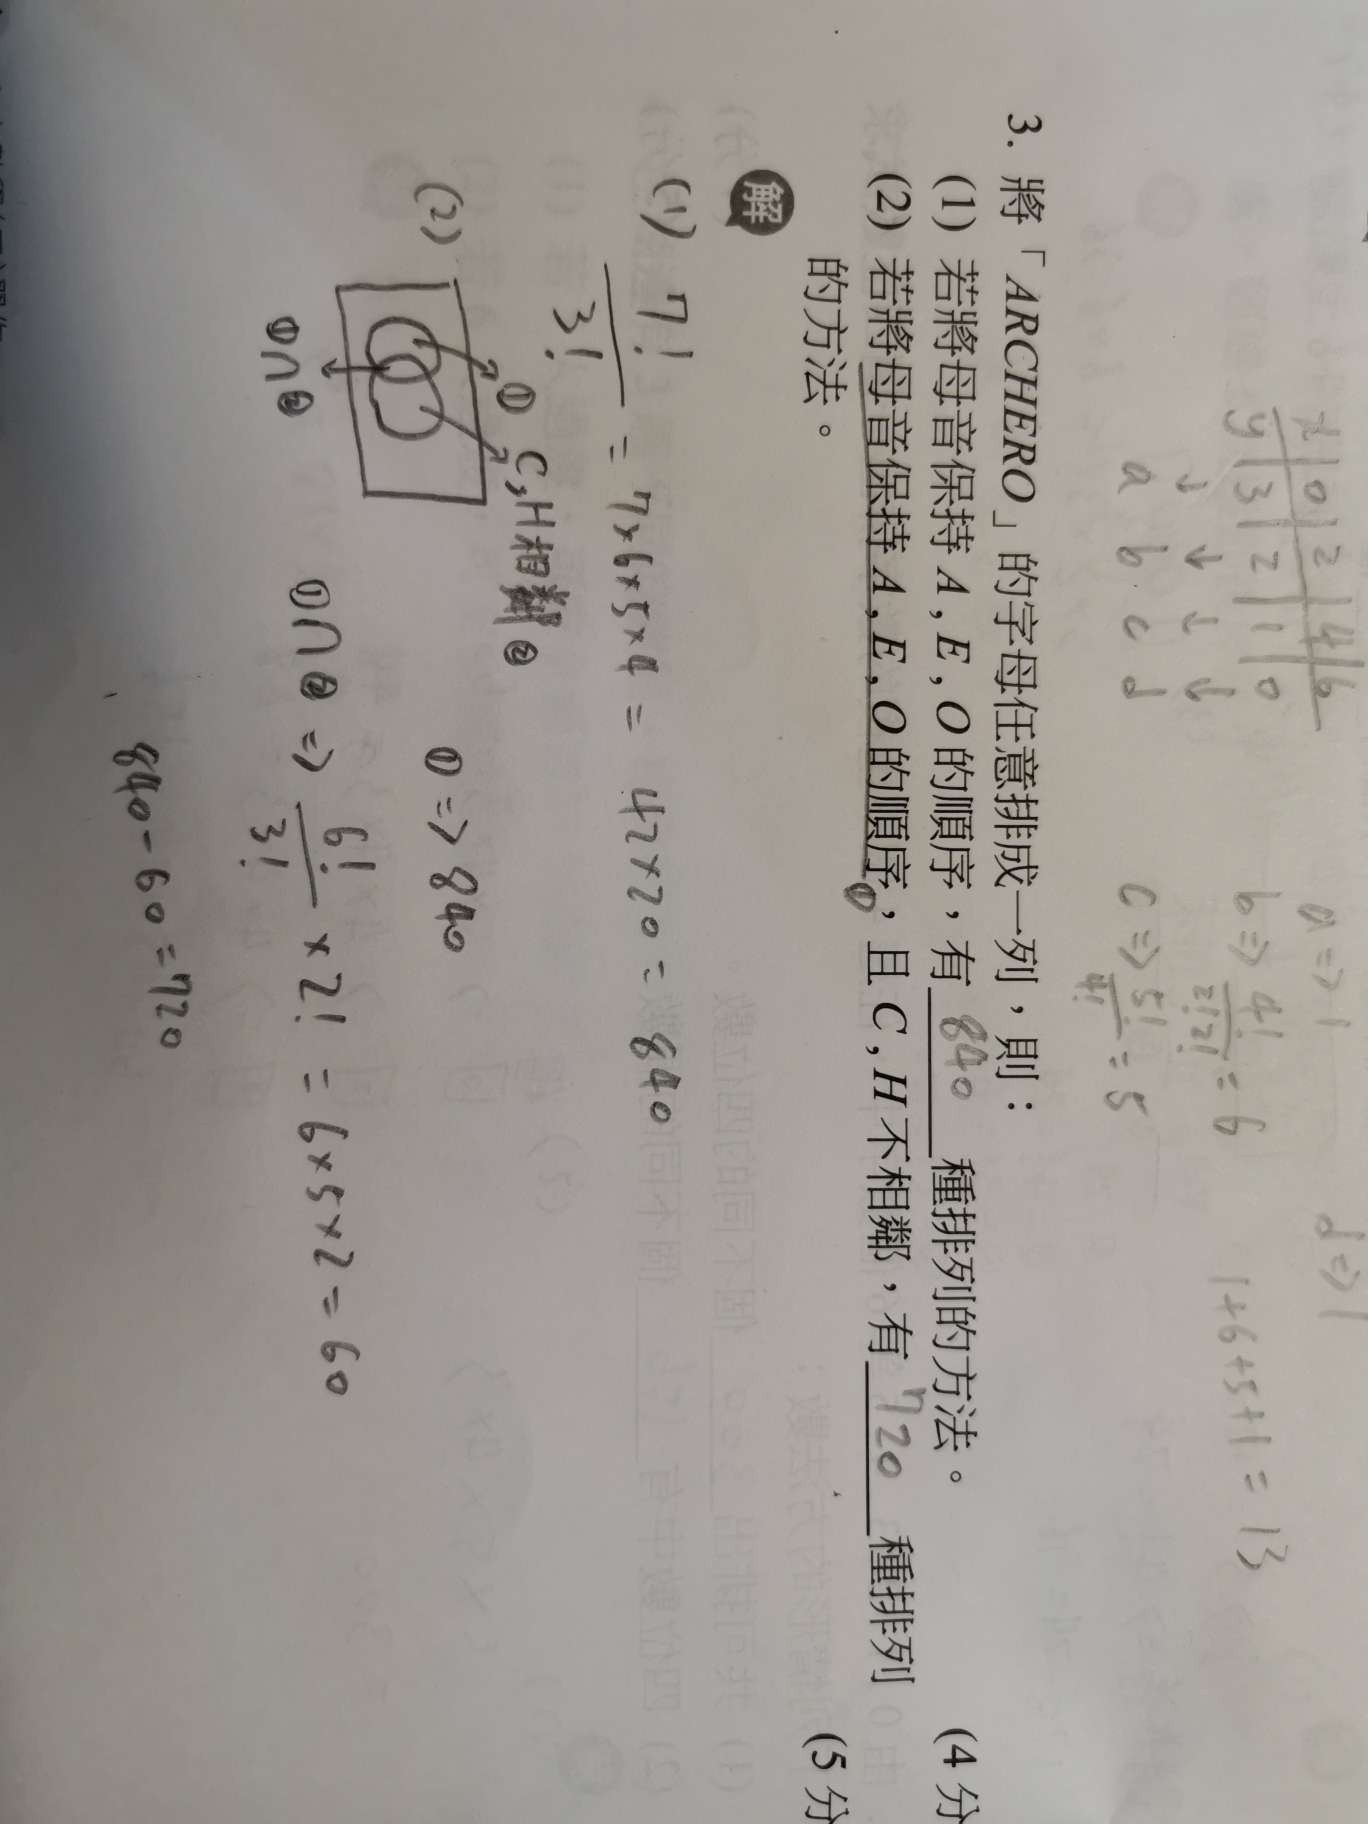 x | 0 | 2 | 4 | 6
y | 3 | 2 | 1 | 0
↓ ↓ ↓ ↓
a b c d
a => 1
b => 4!/2!2! = 6
c => 5!/4! = 5
d => 1
1+6+5+1 = 13
3. 將「ARCHERO」的字母任意排成一列，則：
(1) 若將母音保持 A , E , O 的順序，有 840 種排列的方法。 (4 分
(2) 若將母音保持 A , E , O 的順序①，且 C , H 不相鄰，有 720 種排列
的方法。 (5 分
解
(1) 7!/3! = 7×6×5×4 = 42×20 = 840
(2) ① C,H相鄰② ① => 840
①∩②
①∩② => 6!/3! × 2! = 6×5×2 = 60
840-60=720